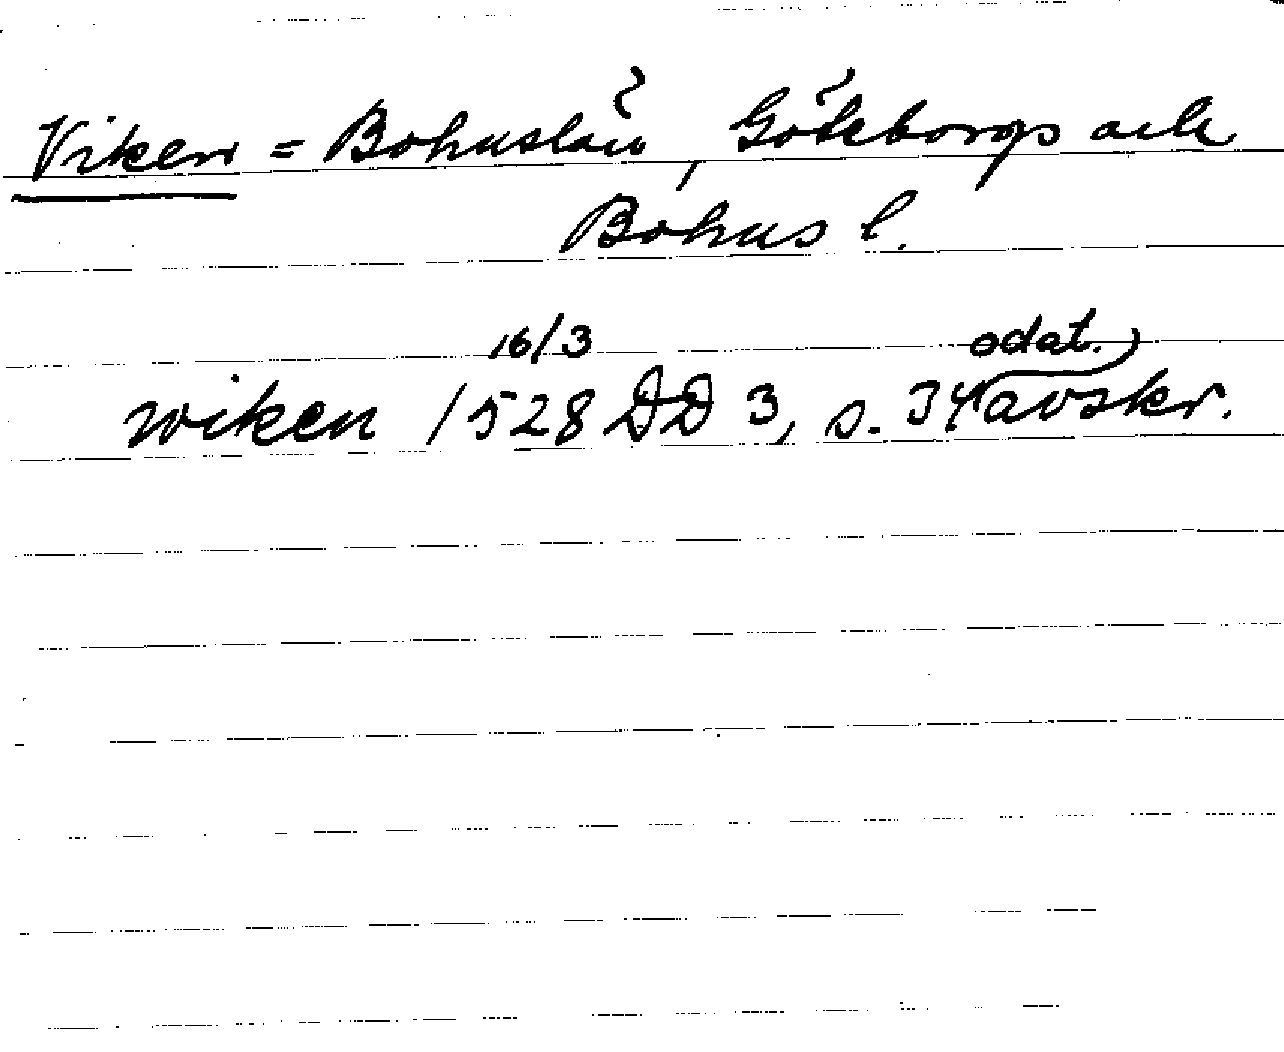 Viken = Bohuslän, Göteborgs och
Bohus l.
16/3 odat.)
wiken 1528 DD 3, s. 34 (avskr.